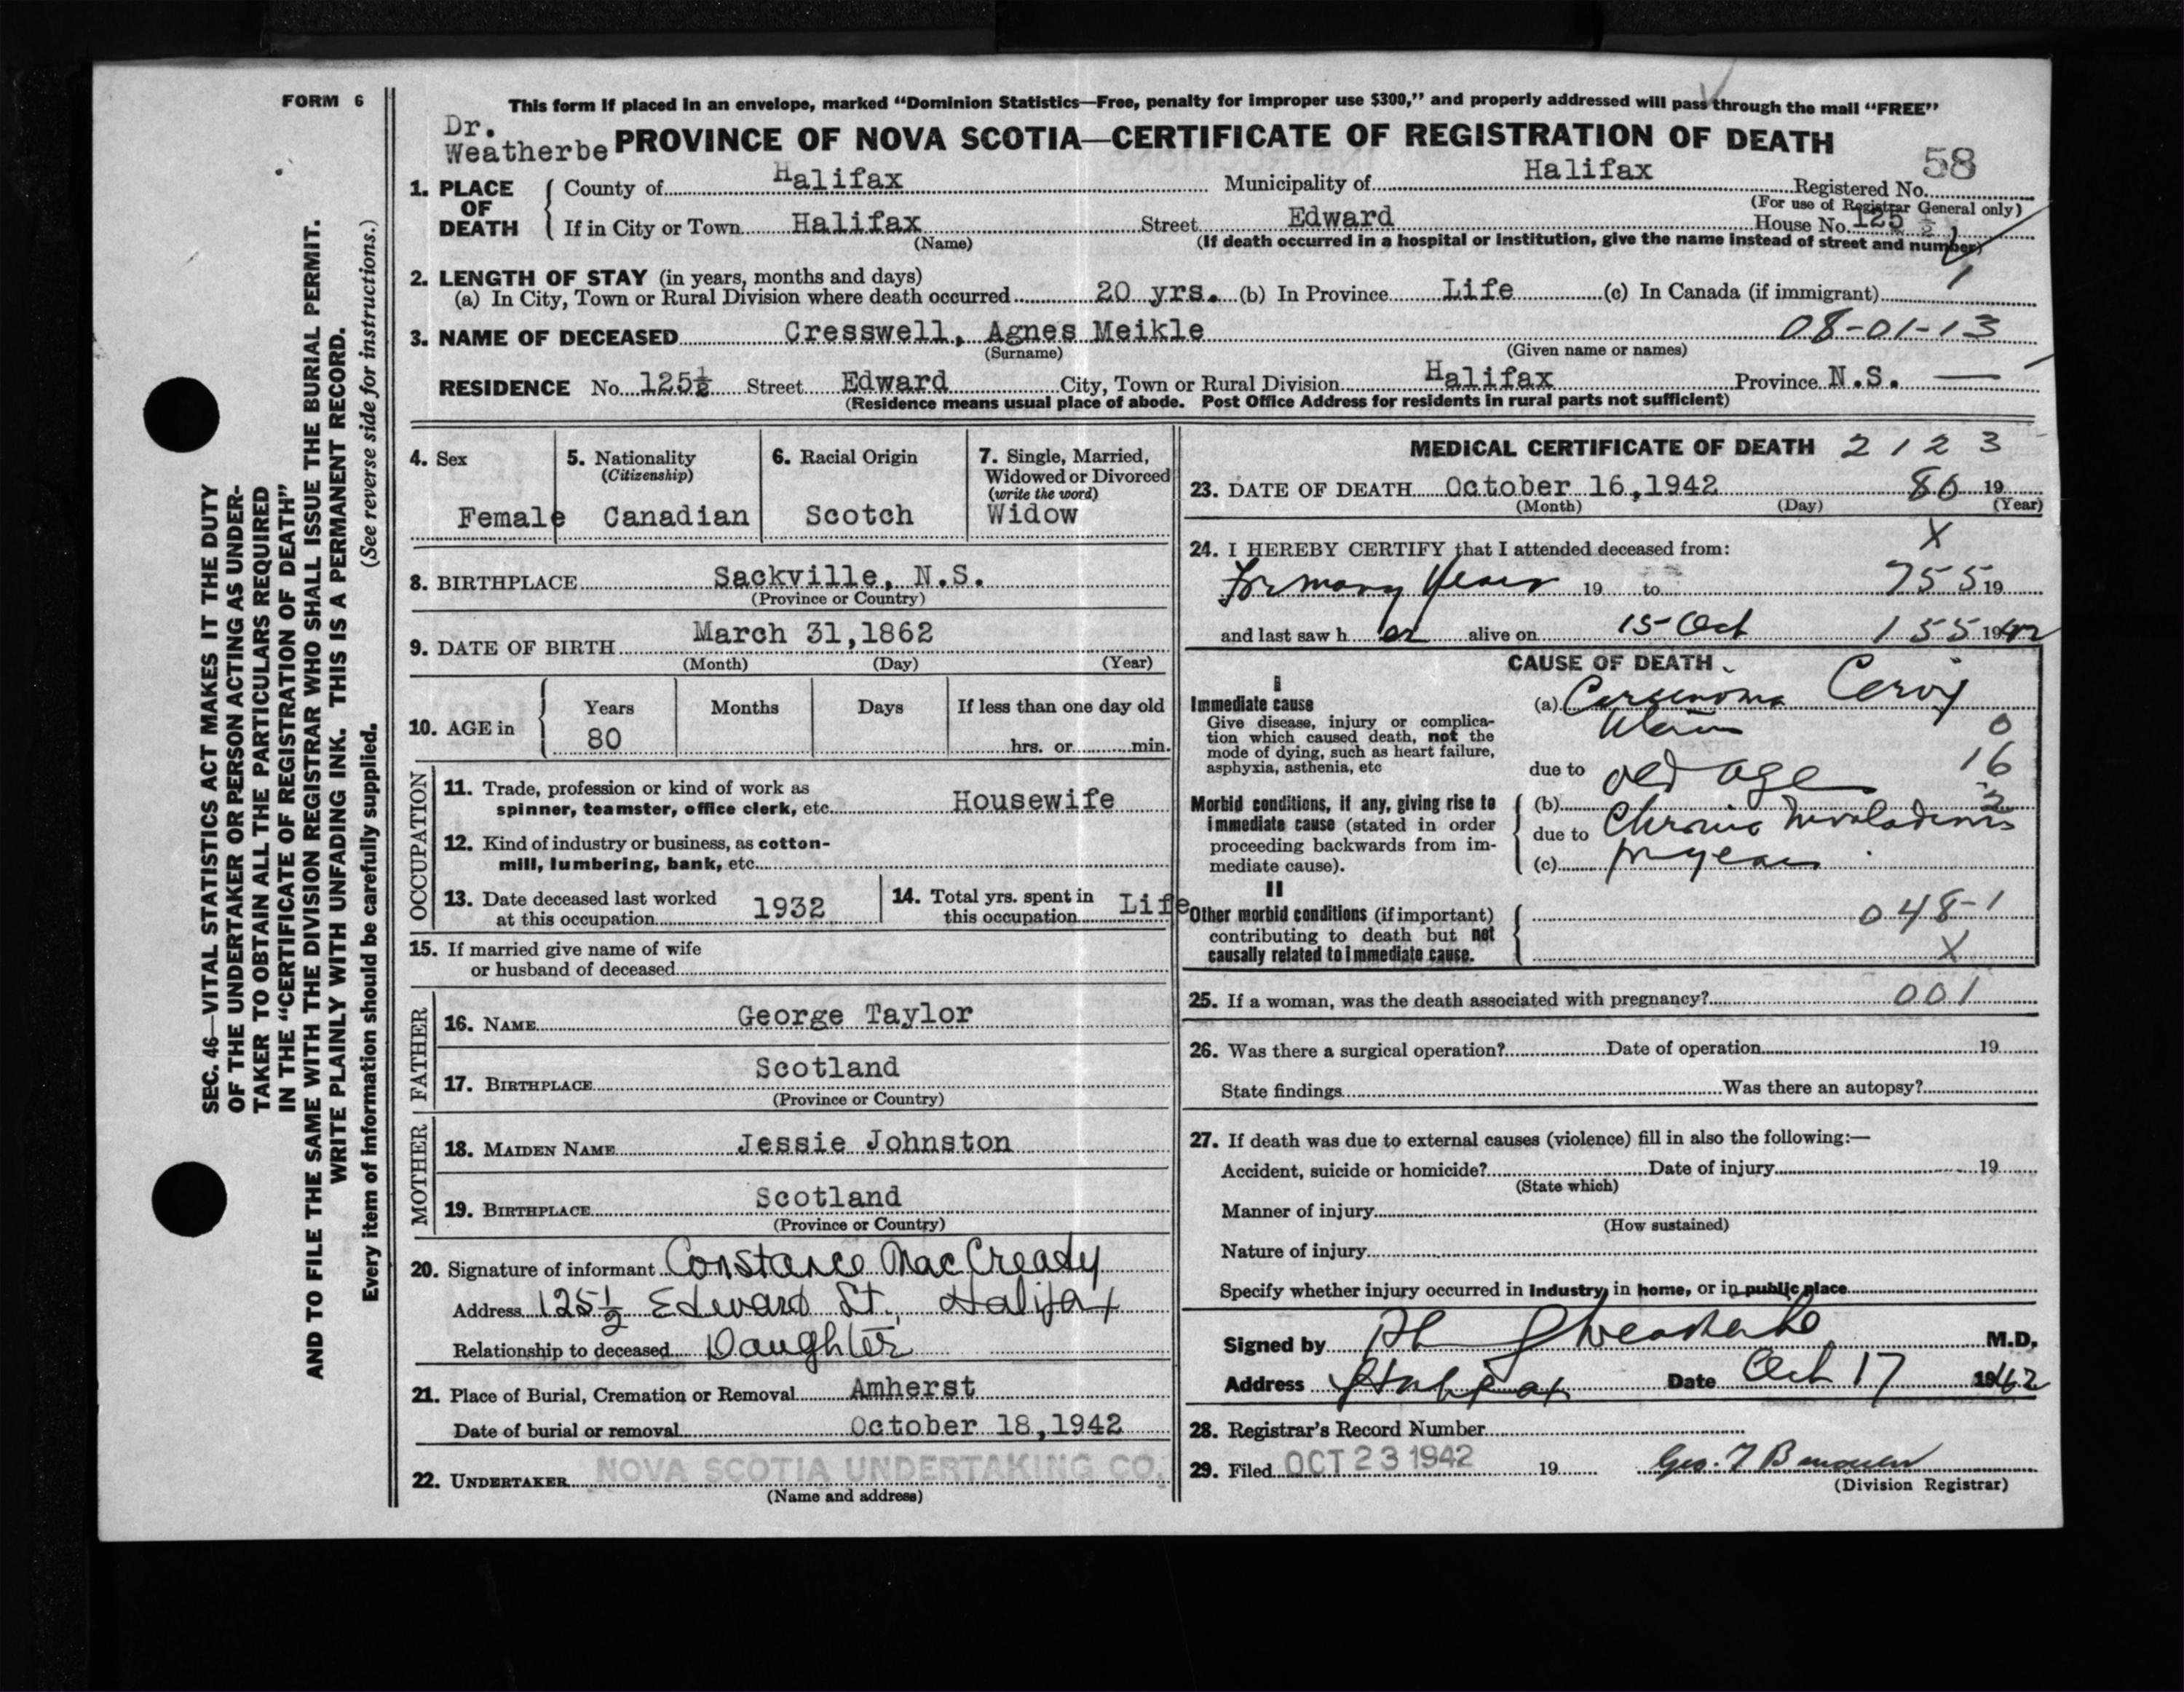 FORM 6
SEC. 46—VITAL STATISTICS ACT MAKES IT THE DUTY
OF THE UNDERTAKER OR PERSON ACTING AS UNDER-
TAKER TO OBTAIN ALL THE PARTICULARS REQUIRED
IN THE "CERTIFICATE OF REGISTRATION OF DEATH"
AND TO FILE THE SAME WITH THE DIVISION REGISTRAR WHO SHALL ISSUE THE BURIAL PERMIT.
WRITE PLAINLY WITH UNFADING INK. THIS IS A PERMANENT RECORD.
Every item of information should be carefully supplied. (See reverse side for instructions.)
This form if placed in an envelope, marked "Dominion Statistics—Free, penalty for improper use $300," and properly addressed will pass through the mail "FREE"
Dr.
Weatherbe PROVINCE OF NOVA SCOTIA—CERTIFICATE OF REGISTRATION OF DEATH
58
1. PLACE OF DEATH County of Halifax Municipality of Halifax Registered No.
(For use of Registrar General only)
If in City or Town Halifax Street Edward House No. 125 ½
(Name) (If death occurred in a hospital or institution, give the name instead of street and number)
2. LENGTH OF STAY (in years, months and days)
(a) In City, Town or Rural Division where death occurred 20 yrs. (b) In Province Life (c) In Canada (if immigrant)
3. NAME OF DECEASED Cresswell, Agnes Meikle 08-01-13
(Surname) (Given name or names)
RESIDENCE No. 125½ Street Edward City, Town or Rural Division Halifax Province N.S. —
(Residence means usual place of abode. Post Office Address for residents in rural parts not sufficient)
4. Sex
Female
5. Nationality
(Citizenship)
Canadian
6. Racial Origin
Scotch
7. Single, Married,
Widowed or Divorced
(write the word)
Widow
8. BIRTHPLACE Sackville, N.S.
(Province or Country)
9. DATE OF BIRTH March 31,1862
(Month) (Day) (Year)
10. AGE in Years Months Days If less than one day old
80 hrs. or min.
OCCUPATION
11. Trade, profession or kind of work as
spinner, teamster, office clerk, etc. Housewife
12. Kind of industry or business, as cotton-
mill, lumbering, bank, etc.
13. Date deceased last worked
at this occupation 1932
14. Total yrs. spent in
this occupation Life
15. If married give name of wife
or husband of deceased
FATHER
16. NAME George Taylor
17. BIRTHPLACE Scotland
(Province or Country)
MOTHER
18. MAIDEN NAME Jessie Johnston
19. BIRTHPLACE Scotland
(Province or Country)
20. Signature of informant Constance MacCready
Address 125½ Edward St. Halifax
Relationship to deceased Daughter
21. Place of Burial, Cremation or Removal Amherst
Date of burial or removal October 18,1942
22. UNDERTAKER NOVA SCOTIA UNDERTAKING CO.
(Name and address)
MEDICAL CERTIFICATE OF DEATH 2 1 2 3
23. DATE OF DEATH October 16,1942 80 19
(Month) (Day) (Year)
24. I HEREBY CERTIFY that I attended deceased from: X
for many years 19 to 755 19
and last saw h er alive on 15 Oct 155 1942
CAUSE OF DEATH
I
Immediate cause
Give disease, injury or complica-
tion which caused death, not the
mode of dying, such as heart failure,
asphyxia, asthenia, etc
(a) Carcinoma Cervix
0
16
due to old age
Morbid conditions, if any, giving rise to
immediate cause (stated in order
proceeding backwards from im-
mediate cause).
(b)
due to Chronic
(c) years
II
Other morbid conditions (if important)
contributing to death but not
causally related to immediate cause.
048-1
X
25. If a woman, was the death associated with pregnancy? 001
26. Was there a surgical operation? Date of operation 19
State findings Was there an autopsy?
27. If death was due to external causes (violence) fill in also the following:—
Accident, suicide or homicide? Date of injury 19
(State which)
Manner of injury
(How sustained)
Nature of injury
Specify whether injury occurred in industry, in home, or in public place
Signed by Weatherbe M.D.
Address Halifax Date Oct 17 1942
28. Registrar's Record Number
29. Filed OCT 23 1942 19 Geo.
(Division Registrar)